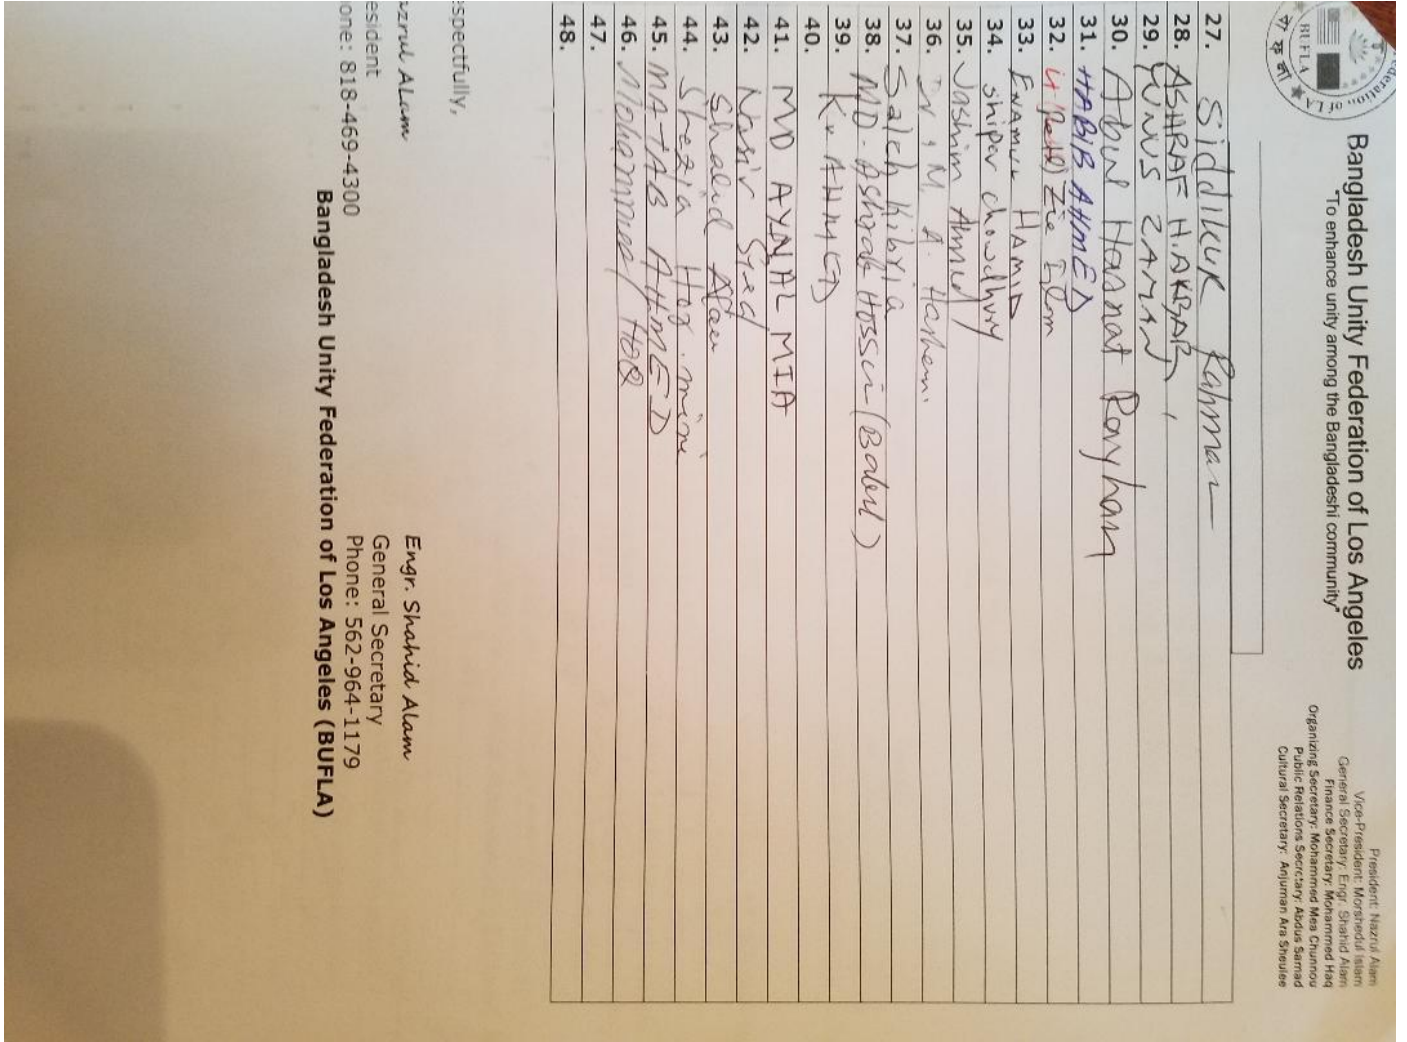 Federation of LA
BUFLA
Bangladesh Unity Federation of Los Angeles
"To enhance unity among the Bangladeshi community"
President: Nazrul Alam
Vice-President: Morshedul Islam
General Secretary: Engr. Shahid Alam
Finance Secretary: Mohammed Haq
Organizing Secretary: Mohammed Mea Chunnou
Public Relations Secretary: Abdus Samad
Cultural Secretary: Anjuman Ara Sheulee
27. Siddikur Rahman
28. ASHRAF H. AKBAR
29. YUNUS ZAMAN
30. Abul Hasnat Rayhan
31. HABIB AHMED
32.
33. ENAMUL HAMID
34. shipar chowdhury
35. Jashim Ahmed
36. M. A. Hashem
37. Saleh Kibria
38. MD. Ashraf Hossein (Babul)
39. K. AHMED
40.
41. MD AYNAL MIA
42. Nasir Syed
43. Shahid Alam
44. Hoq. mini
45. MATAB AHMED
46. Mohammed HOQ
47.
48.
espectfully,
azrul Alam
esident
one: 818-469-4300
Engr. Shahid Alam
General Secretary
Phone: 562-964-1179
Bangladesh Unity Federation of Los Angeles (BUFLA)